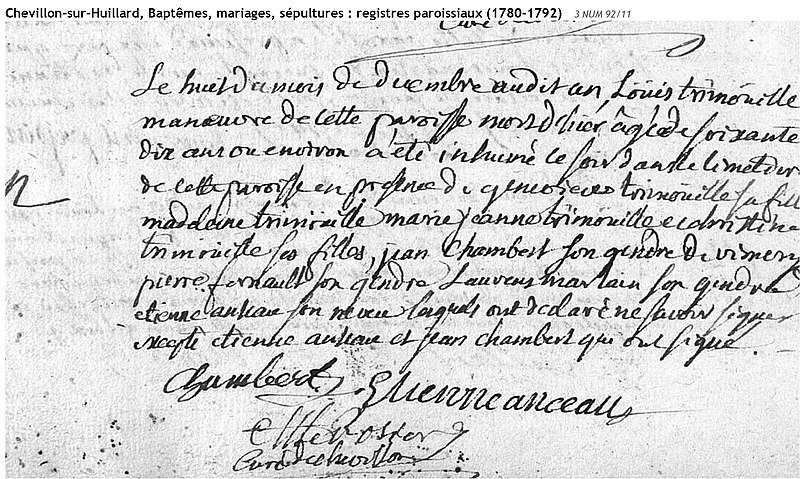 Chevillon-sur-Huillard, Baptêmes, mariages, sépultures : registres paroissiaux (1780-1792) 3 NUM 92/11
Le huit du mois de decembre audit an, Louis trimouille
manœuvre de cette paroisse mort d'hiér, âgé de soixante
dix ans ou environ à été inhumé ce soir dans le cimetiere
de cette paroisse en presence de genevieve trimouille sa fille
madelaine trimouille marie jeanne trimouille et
trimouille ses filles, jean Chambert son gendre de vimory
pierre son gendre Laurens son gendre
etienne anseau son neveu lesquels ont declaré ne savoir signer
excepté etienne anseau et jean chambert qui ont signé.
Chambert Etienne anceau
Curé de chevillon